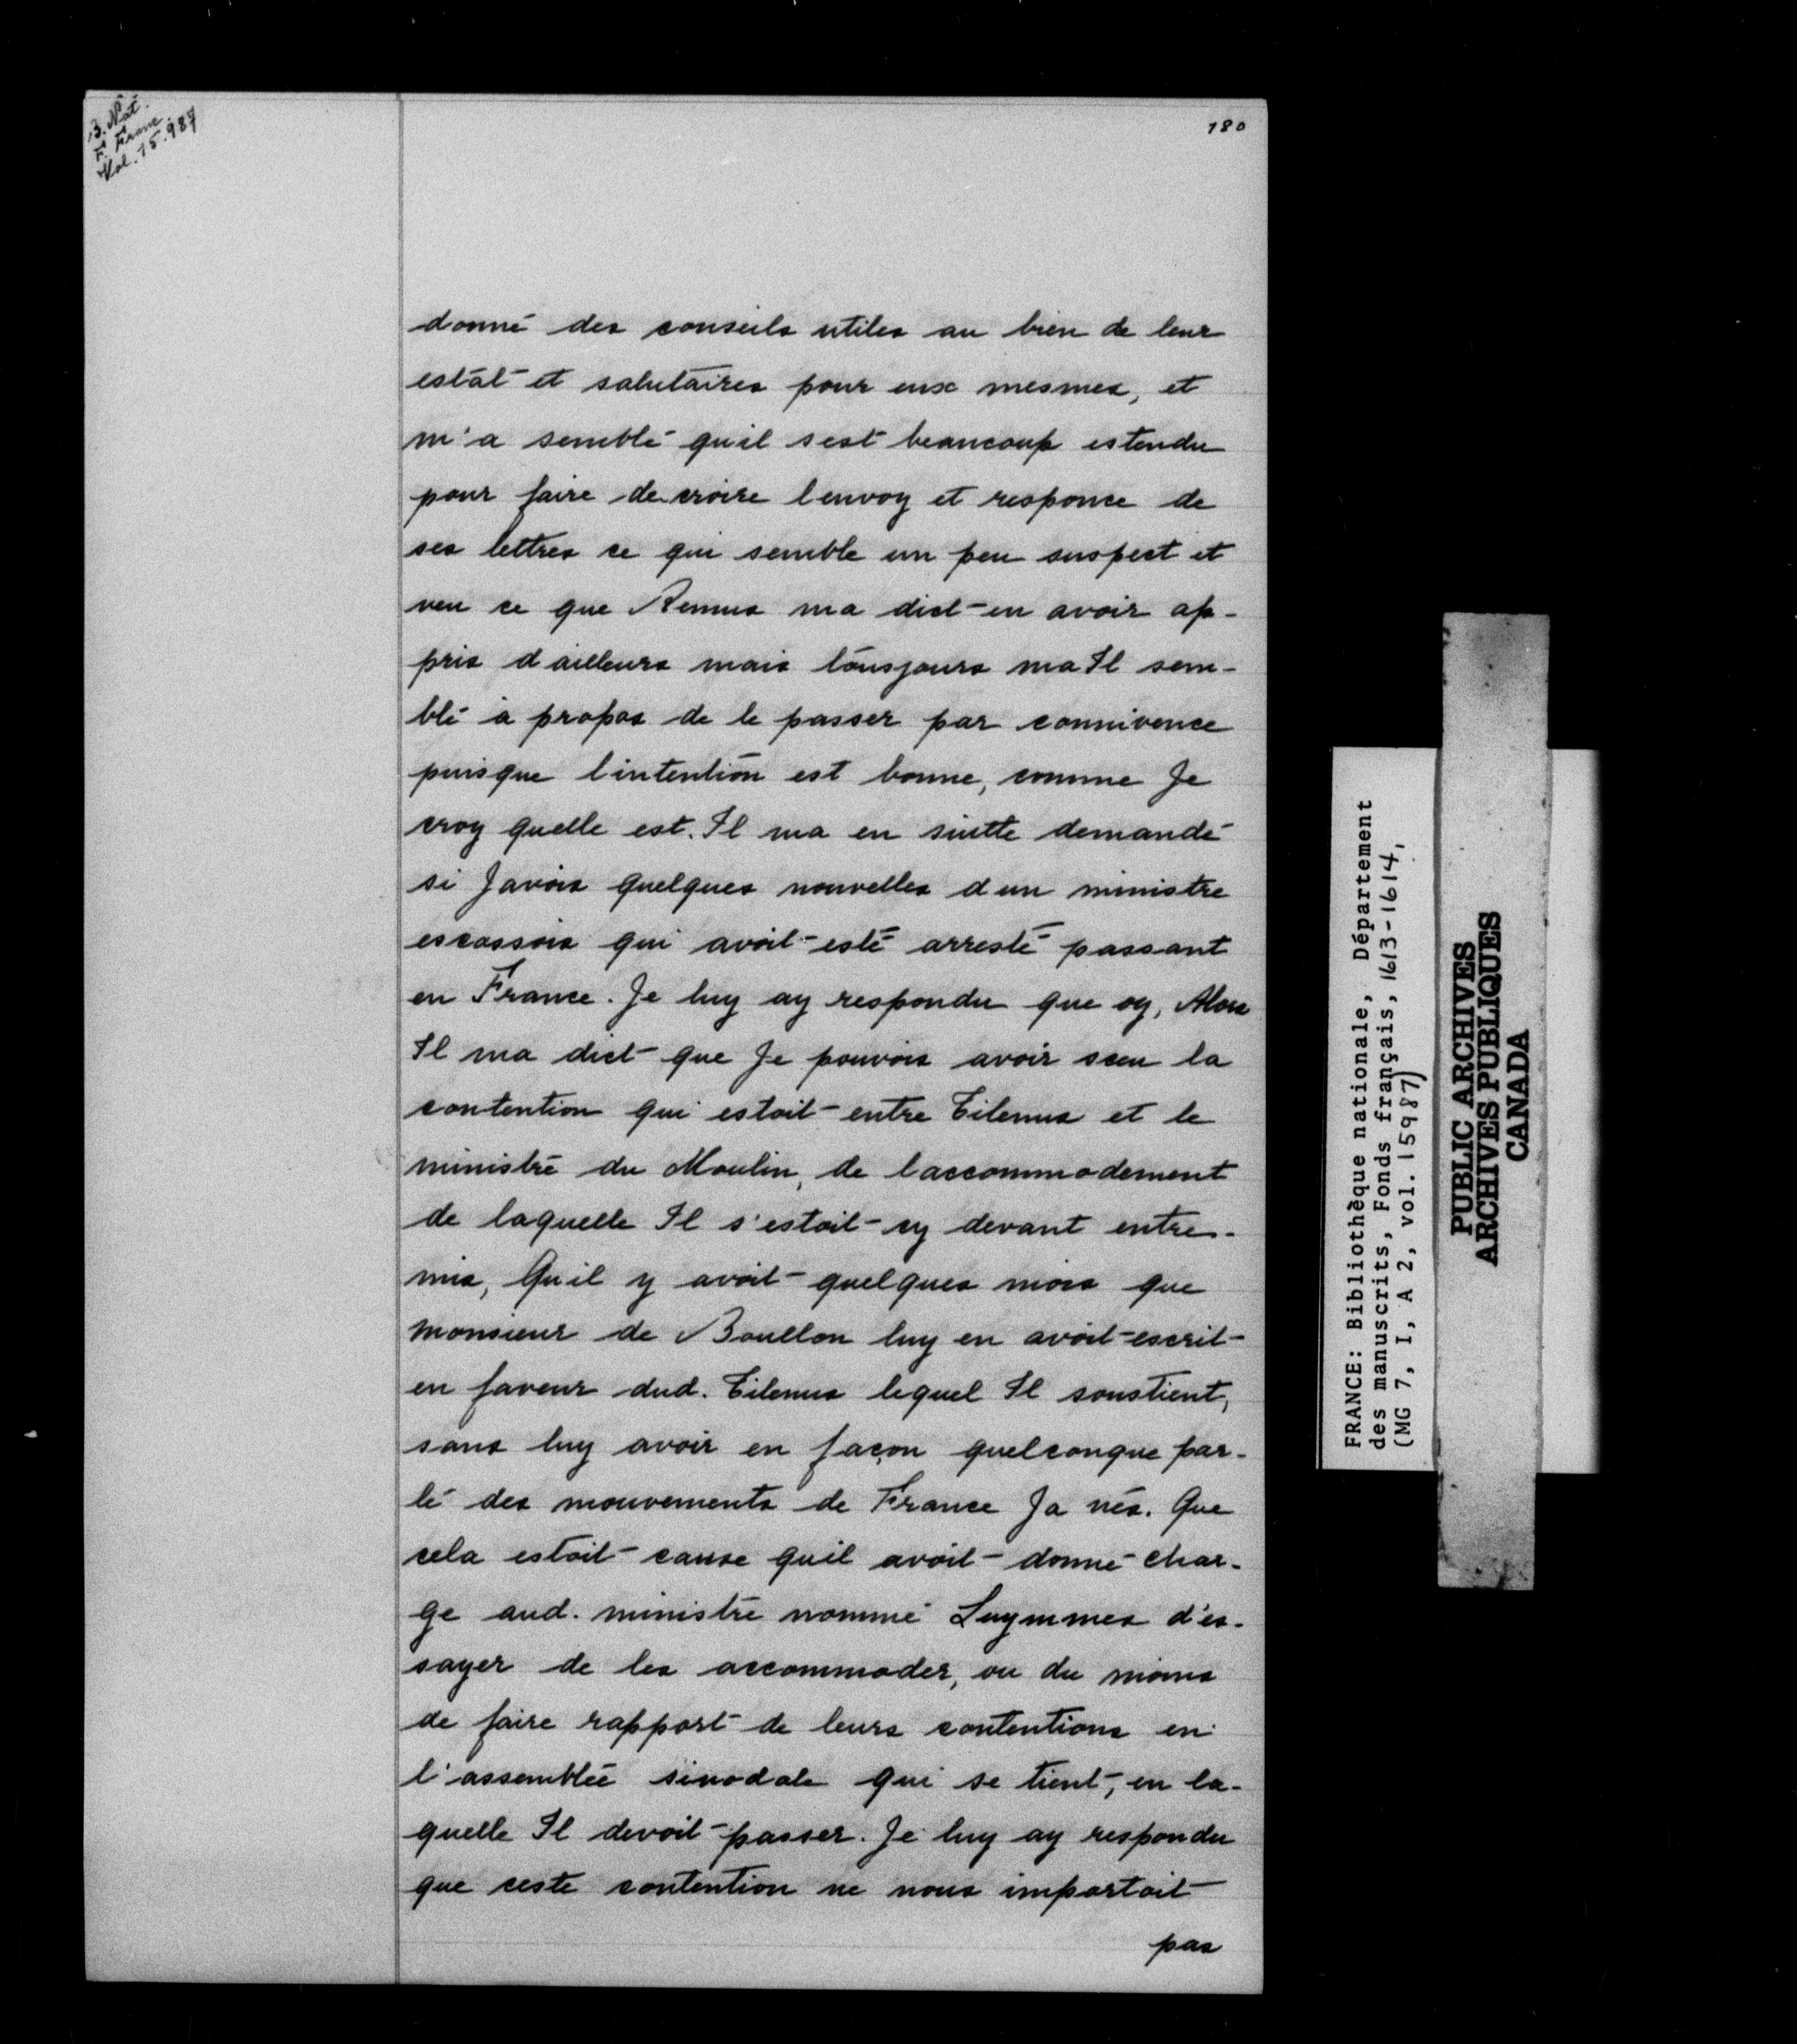 B. Nat.
F. Franc.
Vol. 15.987
180
donné des conseils utiles au bien de leur
estat et salutaires pour eux mesmes, et
m'a semblé quil sest beaucoup estendu
pour faire decroire lenvoy et responce de
ses lettres ce qui semble un peu suspect et
veu ce que Remus ma dict en avoir ap-
pris dailleurs mais tousjours ma Il sem-
blé à propos de le passer par connivence
puisque lintention est bonne, comme Je
croy quelle est. Il ma en suitte demandé
si Javois quelques nouvelles dun ministre
escossois qui avoit esté arresté passant
en France. Je luy ay respondu que oy, Alors
Il ma dict que Je pouvois avoir sceu la
contention qui estoit entre Tilenus et le
ministre du Moulin, de laccommodement
de laquelle Il s'estoit cy devant entre-
mis, Quil y avoit quelques mois que
monsieur de Boullon luy en avoit escrit
en faveur dud. Tilenus lequel Il soustient,
sans luy avoir en façon quelconque par-
lé des mouvements de France Ja nés. Que
cela estoit cause quil avoit donné char-
ge aud. ministre nommé Luymmes d'es-
sayer de les accommoder, ou du moins
de faire rapport de leurs contentions en
l'assemblée sinodale qui se tient, en la-
quelle Il devoit passer. Je luy ay respondu
que ceste contention ne nous importoit
pas
FRANCE: Bibliothèque nationale, Département
des manuscrits, Fonds français, 1613-1614,
(MG 7, I, A 2, vol. 15987)
PUBLIC ARCHIVES
ARCHIVES PUBLIQUES
CANADA